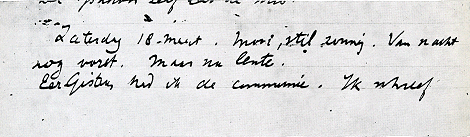 Zaterdag 18 Maart. Mooi, stil zonnig. Van nacht
nog vorst. Maar na lente.
Eer Gisteren had ik de communie. Ik schreef